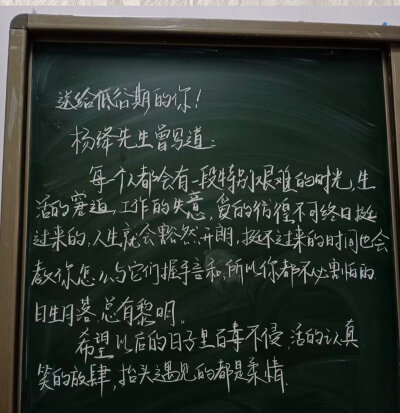 送给低谷期的你！
杨绛先生曾写道：
每个人都会有一段特别艰难的时光，生
活的窘迫，工作的失意，爱的彷徨不可终日挺
过来的，人生就会豁然开朗，挺不过来的时间也会
教你怎么与它们握手言和，所以你都不必害怕的.
日生月落总有黎明.
希望以后的日子里百毒不侵，活的认真
笑的放肆，抬头遇见的都是柔情.